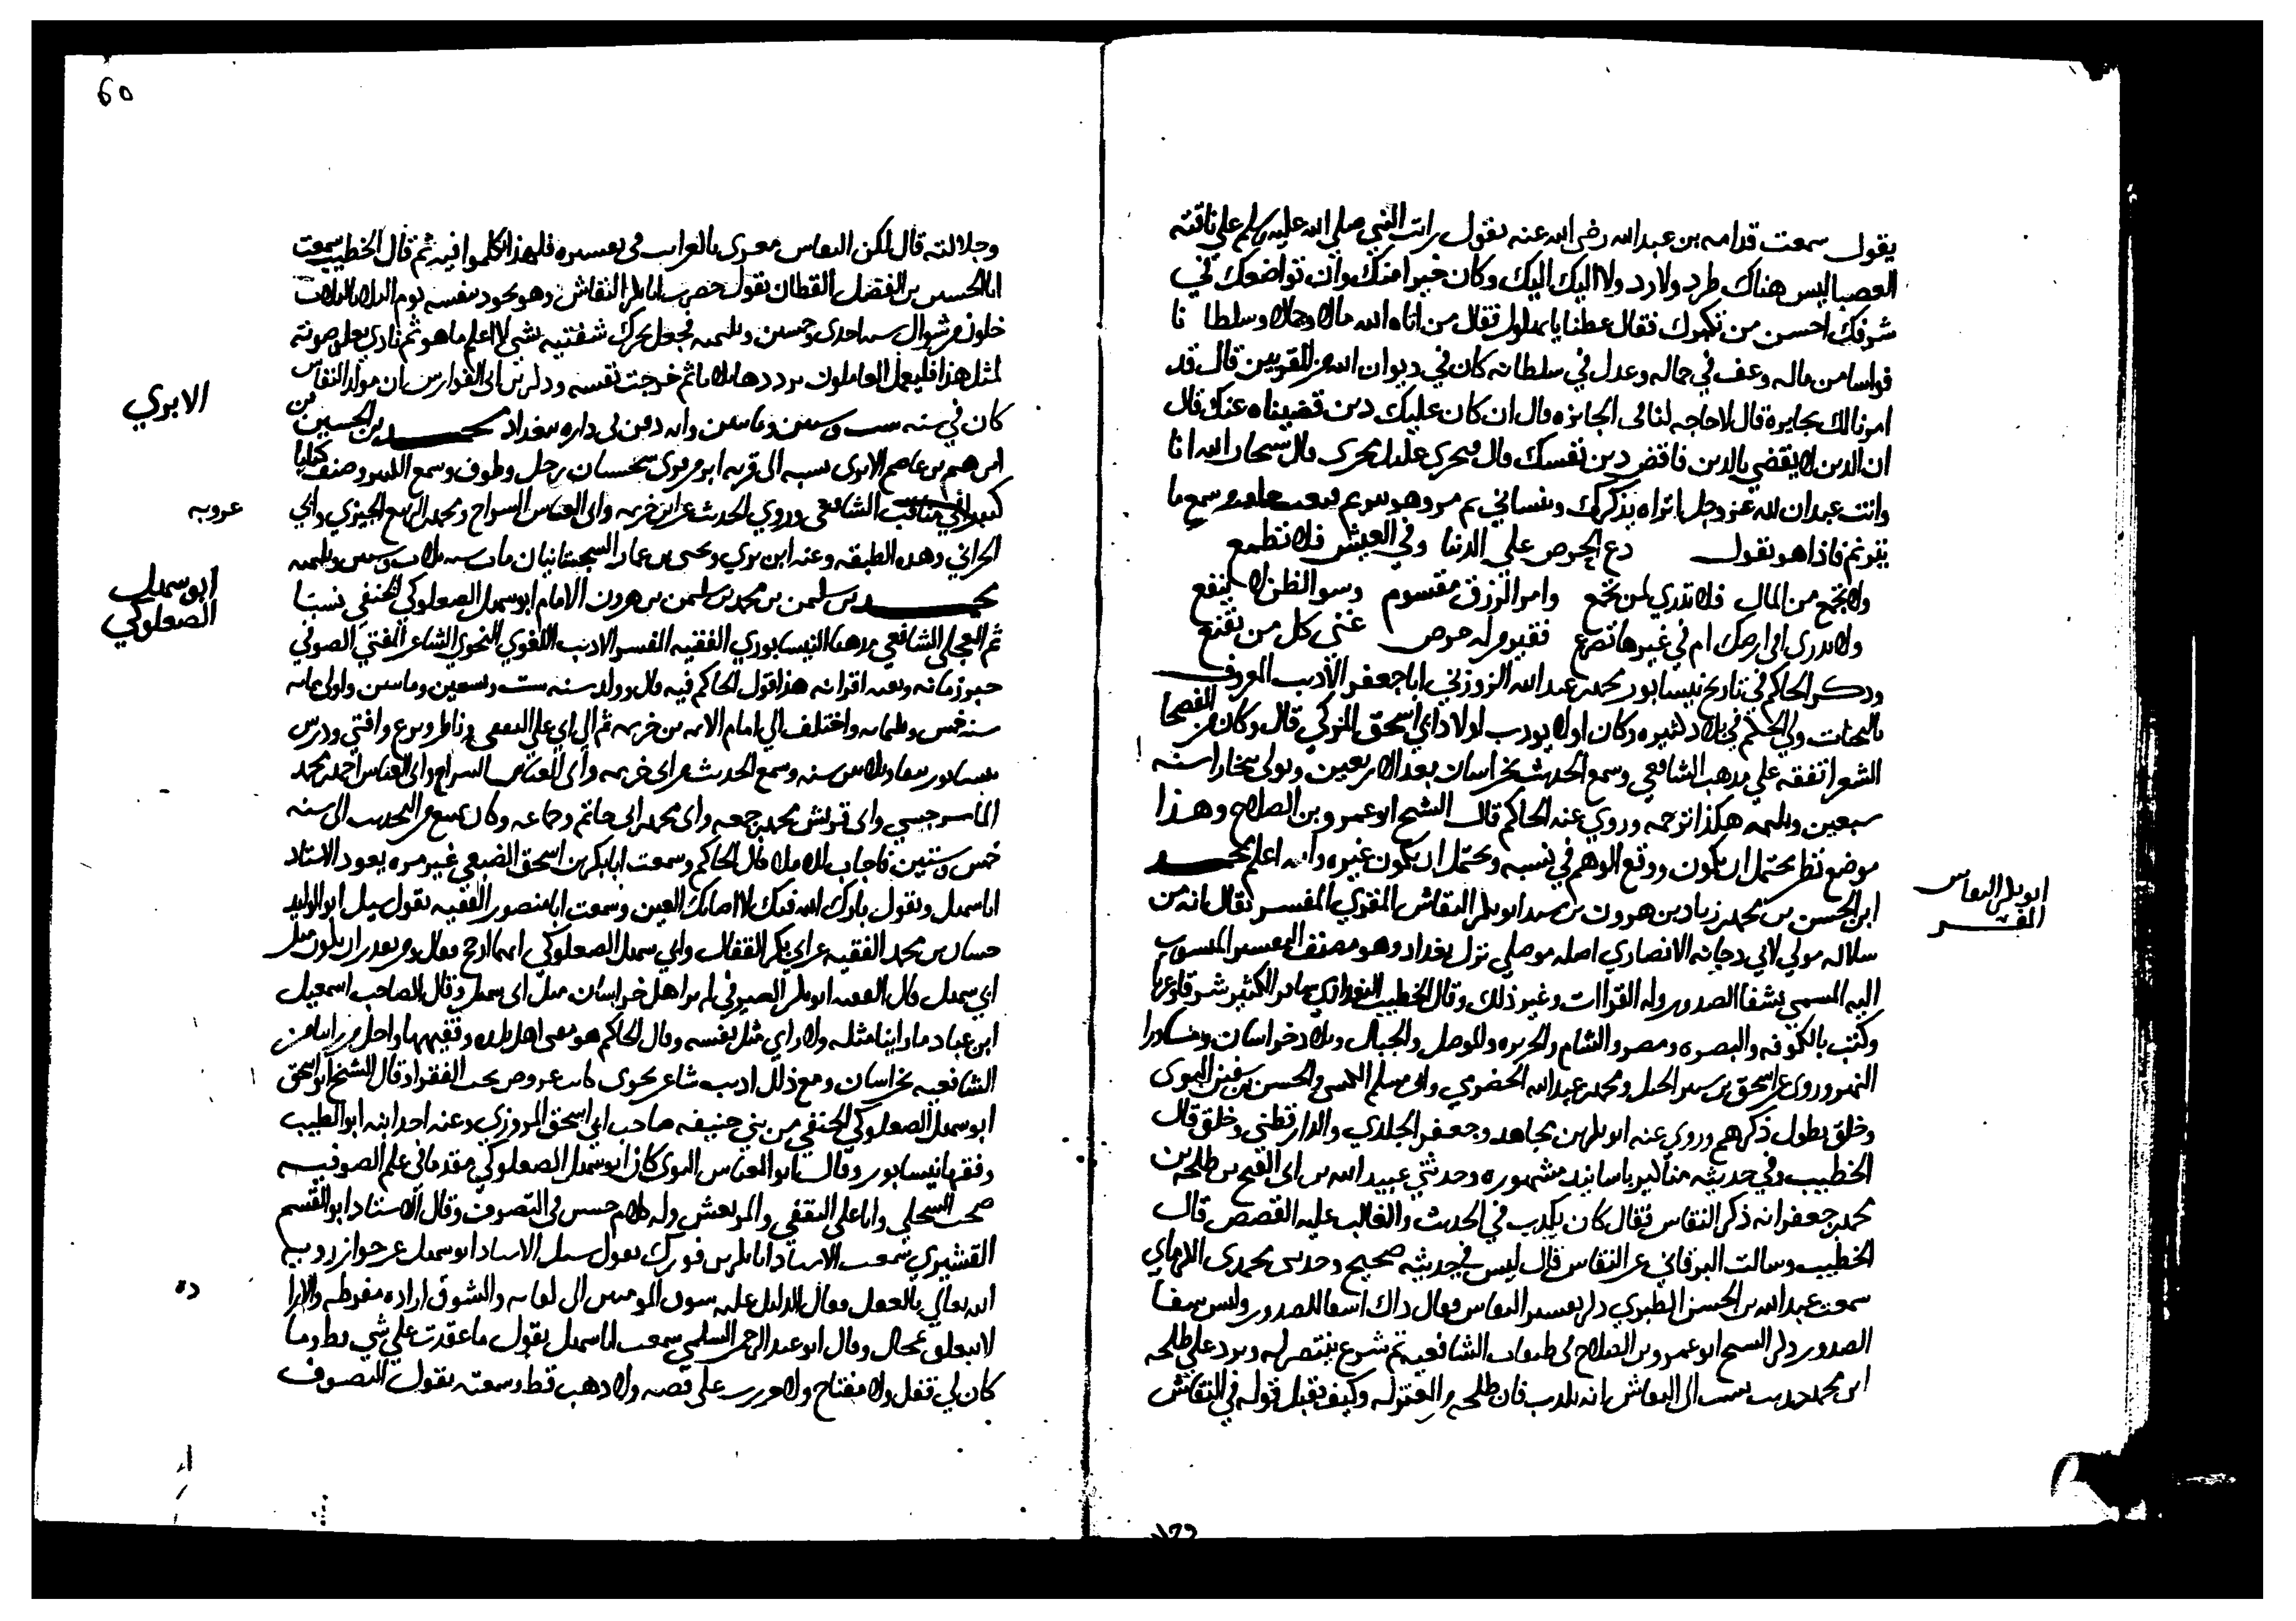 يقول سمعت قدامه بن عبد الله رضي الله عنه يقول رات النبي صلي الله عليه وسلم علي ناقته
العصبا ليس هناك طرد ولا رد ولا اليك اليك وكان خيرا منك وان تواضعك في
شرفك احسن من تكبرك فقال عظنا يا بهلول فقال من اتاه الله مالا وجمالا وسلطانا
فواسا من ماله وعف في جماله وعدل في سلطانه كان في ديوان الله من المقربين قال قد
امرنا لك بجايزه قال لا حاجه لنا في الجايزه قال ان كان عليك دين قضيناه عنك قال
ان الدين لا يقضي بالدين فاقض دين نفسك قال فيجري عليك مجري قال سبحان الله انا
وانت عبدان لله عز وجل اتراه يذكرك وينساني ثم مر وهو يترنم
يترنم فاذا هو يقول دع الحرص علي الدنيا وفي العيش فلا تطمع
ولا تجمع من المال فلا تدري لمن تجمع وامر الرزق مقسوم وسو الظن لا ينفع
ولا تدري افي ارضك ام في غيرها تصرع فقير من له حرص غني كل من يقنع
وذكر الحاكم في تاريخ نيسابور محمد بن عبد الله الزوزني ابا جعفر الاديب المعروف
بالبحاث ولي الحكم في بلاد كثيره وكان اولا يودب اولاد ابي اسحق المزكي قال وكان من الفصحا
الشعرا تفقه علي مذهب الشافعي وسمع الحديث بخراسان بعد الاربعين وتوفي ببخارا سنه
سبعين وثلثمه هكذا ترجمه وروي عنه الحاكم قال الشيخ ابو عمرو بن الصلاح وهذا
موضع نظر يحتمل ان يكون ووقع الوهم في نسبه ويحتمل ان يكون غيره والله اعلم محمد
ابن الحسن بن محمد بن زياد بن هرون بن سند ابو بكر النقاش المقري المفسر يقال انه من
ابو بكر النقاش
المفسر
سلاله مولي لابي دجانه الانصاري اصله موصلي نزل بغداد وهو مصنف التفسير المنسوب
اليه المسمي بشفا الصدور وله القراات وغير ذلك وقال الخطيب البغدادي سافر الكثير شرقا وغربا
وكتب بالكوفه والبصره ومصر والشام والجزيره والموصل والجبال وبلاد خراسان وما ورا
النهر وروي عن اسحق بن سنين الختلي ومحمد بن عبد الله الحضرمي وابي مسلم الكجي والحسن بن سفين النسوي
وخلق يطول ذكرهم وروي عنه ابو بكر بن مجاهد وجعفر الخلدي والدارقطني وخلق قال
الخطيب وفي حديثه مناكير باسانيد مشهوره وحدثني عبيد الله بن ابي الفتح عن طلحه بن
محمد بن جعفر انه ذكر النقاش فقال كان يكذب في الحديث والغالب عليه القصص قال
الخطيب وسالت البرقاني عن النقاش قال ليس في حديثه صحيح وحدثني محمد بن يحيى الكرماني
سمعت هبة الله بن الحسن الطبري ذكر تفسير النقاش فقال ذاك اشفا للصدور وليس بشفا
الصدور ذكر الشيخ ابو عمرو بن الصلاح في طبقات الشافعيه ثم شرع ينتصر له ويرد علي طلحه
ابن محمد حيث نسب الي النقاش انه يكذب فان طلحه من المعتزله وكيف يقبل قوله في النقاش
60
وجلالته قال لكن النقاش مغري بالغرايب في تفسيره فلهذا تكلموا فيه ثم قال الخطيب سمعت
ابا الحسين بن الفضل القطان يقول حضرت ابا بكر النقاش وهو يجود بنفسه يوم الثلاثا لثلاث
خلون من شوال سنه احدي وخمسين وثلثمه فجعل يحرك شفتيه بشي لا اعلم ما هو ثم نادي بعلو صوته
لمثل هذا فليعمل العاملون يرددها ثلاثا ثم خرجت نفسه وذكر بن ابي الفوارس ان مولد النقاش
كان في سنه ست وستين وماتين وانه دفن في داره ببغداد محمد بن الحسين بن
الابري
ابرهيم بن عاصم الابري نسبه الي قريه ابر من قري سجستان رحل وطوف وسمع الكثير وصنف كتابا
كبيرا في مناقب الشافعي وروي الحديث عن ابن خزيمه وابي العباس السراج ومحمد بن الربيع الجيزي وابي
عروبه
الحراني وهذه الطبقه وعنه ابن بري ويحيي بن عمار السجستانيان مات سنه ثلاث وستين وثلثمه
محمد بن سليمن بن محمد بن سليمن بن هرون الامام ابو سهل الصعلوكي الحنفي نسبا
ابو سهل
الصعلوكي
ثم العجلي الشافعي مذهبا النيسابوري الفقيه المفسر الاديب اللغوي النحوي الشاعر المفتي الصوفي
حبر زمانه وبقيه اقرانه هذا قول الحاكم فيه قال وولد سنه ست وتسعين وماتين واول سماعه
سنه خمس وثلثمايه واختلف الي امام الايمه بن خزيمه ثم الي ابي علي الثقفي وناظر وبرع وافتي ودرس
بنيسابور نيفا وثلاثين سنه وسمع الحديث من ابن خزيمه وابي العباس السراج وابي العباس احمد بن محمد
الماسرجسي وابي قريش محمد بن جمعه وابي محمد بن ابي حاتم وجماعه وكان يمتنع من التحديث الي سنه
خمس وستين فاجاب للاملا قال الحاكم وسمعت ابا بكر بن اسحق الضبعي غير مره يعوذ الاستاد
ابا سهل ويقول بارك الله فيك لا اصابك العين وسمعت ابا منصور الفقيه يقول سيل ابو الوليد
حسان بن محمد الفقيه عن ابي بكر القفال وابي سهل الصعلوكي ايهما ارجح فقال ومن يقدر ان يكون مثل
ابي سهل قال الفقيه ابو بكر الصيرفي لم ير اهل خراسان مثل ابي سهل وقال الصاحب اسمعيل
ابن عباد ما راينا مثله ولا راي مثل نفسه وقال الحاكم هو مفتي اهل بلده وفقيهها واجل من راينا من
الشافعيه بخراسان ومع ذلك اديب شاعر نحوي كاتب عروضي محب الفقرا وقال الشيخ ابو اسحق
ابو سهل الصعلوكي الحنفي من بني حنيفه صاحب ابي اسحق المروزي وعنه اخذ ابنه ابو الطيب
وفقها نيسابور وقال ابو العباس النسوي كان ابو سهل الصعلوكي مقدما في علم الصوفيه
صحب الشبلي وابا علي الثقفي والمرتعش وله كلام حسن في التصوف وقال الاستاد ابو القسم
القشيري سمعت الاستاد ابا بكر بن فورك يقول سيل الاستاد ابو سهل عن جواز رويه
الله تعالي بالعقل فقال الدليل عليه شوق المومنين الي لقايه والشوق اراده مفرطه والارا
ده
لا تتعلق بمحال وقال ابو عبد الرحمن السلمي سمعت ابا سهل يقول ما عقدت علي شي قط وما
كان لي قفل ولا مفتاح ولا صررت علي فضه ولا ذهب قط وسمعته يقول التصوف